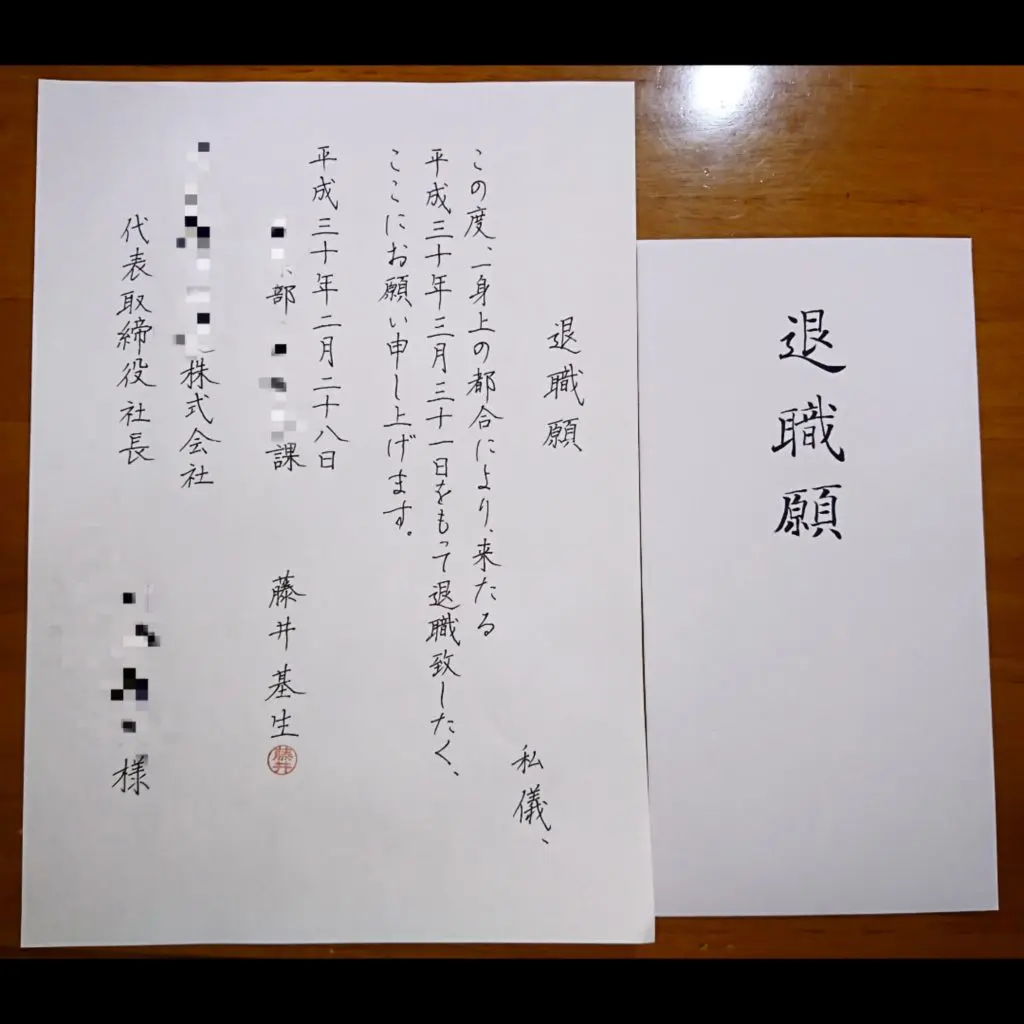 退職願
私儀、
この度、一身上の都合により、来たる
平成三十年三月三十一日をもって退職致したく、
ここにお願い申し上げます。
平成三十年二月二十八日
部 課 藤井基生 藤井
株式会社
代表取締役社長 様
退職願